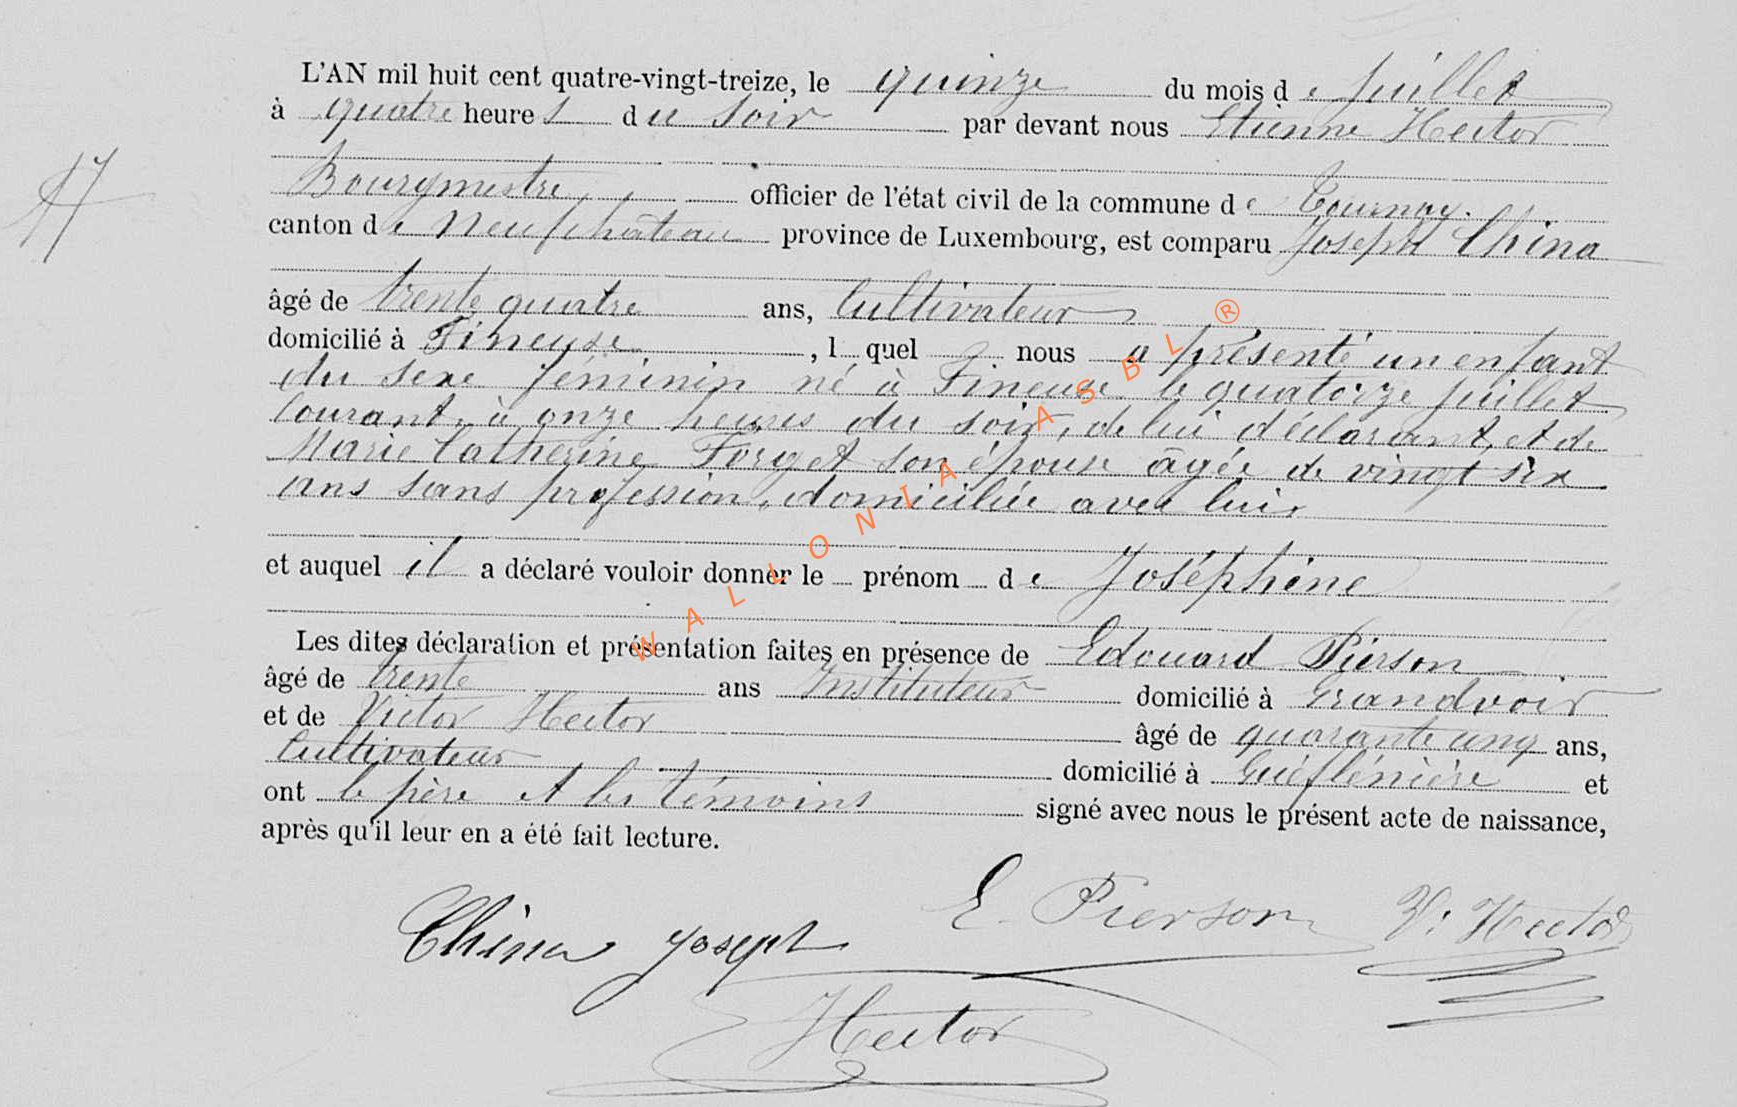 L'AN mil huit cent quatre-vingt-treize, le quinze du mois de juillet
à quatre heures du soir par devant nous Etienne Hector
Bourgmestre, officier de l'état civil de la commune de Tournay.
canton de Neufchateau province de Luxembourg, est comparu Joseph China
âgé de trente quatre ans, Cultivateur
domicilié à Fineuse, l quel nous a présenté un enfant
du sexe féminin né à Fineuse le quatorze juillet
courant, à onze heures du soir, de lui déclarant, et de
Marie Catherine Forget son épouse âgée de vingt six
ans sans profession, domiciliée avec lui,
et auquel il a déclaré vouloir donner le prénom de Joséphine
Les dites déclaration et présentation faites en présence de Edouard Pierson
âgé de trente ans Instituteur domicilié à Grandvoir
et de Victor Hector âgé de quarante cinq ans,
Cultivateur domicilié à et
ont le père et les témoins signé avec nous le présent acte de naissance,
après qu'il leur en a été fait lecture.
17
China Joseph E. Pierson V. Hector
Hector
WALLONIA ASBL ®